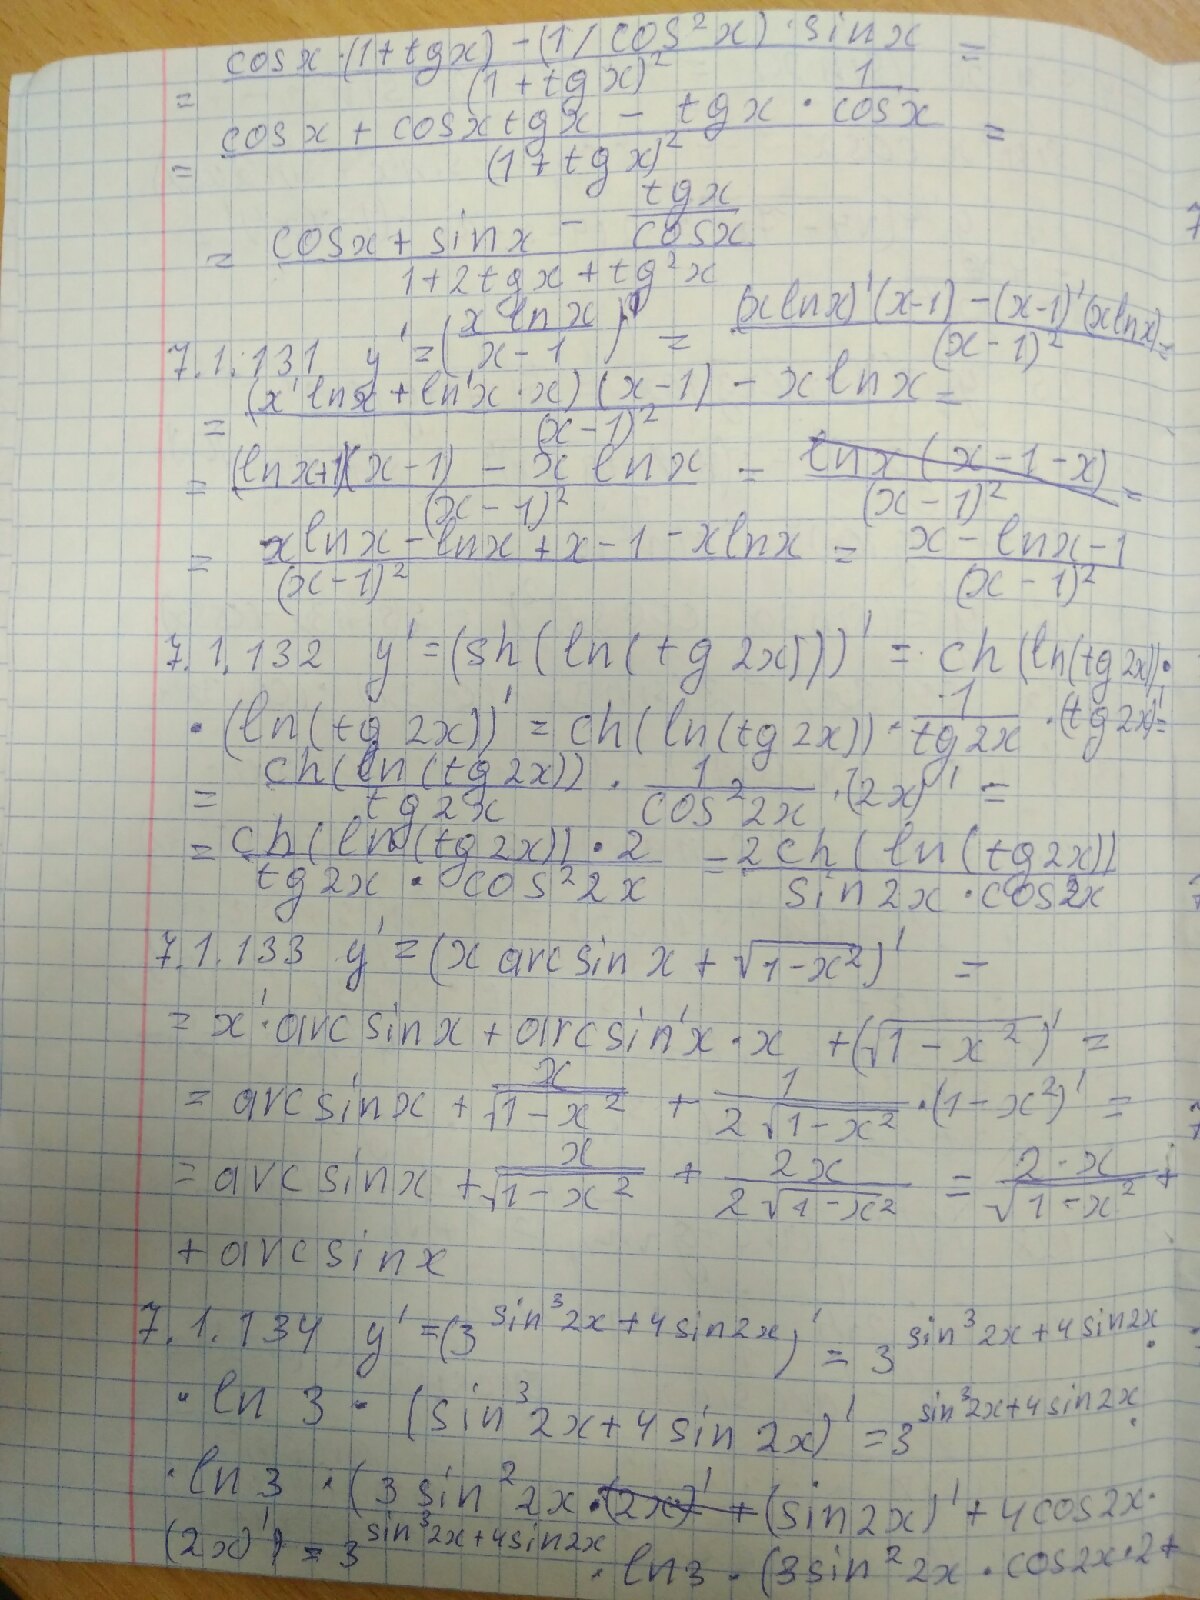 = (cosx·(1+tgx) - (1/cos²x)·sinx)/(1+tgx)² =
= (cosx + cosxtgx - tgx · 1/cosx)/(1+tgx)² =
= (cosx + sinx - tgx/cosx)/(1+2tgx+tg²x)
7.1.131 y' = (x lnx/(x-1))' = ((xlnx)'(x-1) - (x-1)'(xlnx))/(x-1)² =
= ((x'lnx + ln'x·x)(x-1) - xlnx)/(x-1)² =
= ((lnx+1)(x-1) - x lnx)/(x-1)² = lnx(x-1-x)/(x-1)² =
= (xlnx - lnx + x - 1 - xlnx)/(x-1)² = (x - lnx - 1)/(x-1)²
7.1.132 y' = (sh(ln(tg2x)))' = ch(ln(tg2x))·
·(ln(tg2x))' = ch(ln(tg2x)) · 1/tg2x · (tg2x)' =
= ch(ln(tg2x))/tg2x · 1/cos²2x · (2x)' =
= ch(ln(tg2x))·2/(tg2x · cos²2x) = 2ch(ln(tg2x))/(sin2x·cos2x)
7.1.133 y' = (x arcsinx + √(1-x²))' =
= x'·arcsinx + arcsin'x·x + (√(1-x²))' =
= arcsinx + x/√(1-x²) + 1/(2√(1-x²)) · (1-x²)' =
= arcsinx + x/√(1-x²) + 2x/(2√(1-x²)) = 2·x/√(1-x²) +
+ arcsinx
7.1.134 y' = (3^(sin³2x+4sin2x))' = 3^(sin³2x+4sin2x) ·
· ln3 · (sin³2x+4sin2x)' = 3^(sin³2x+4sin2x) ·
· ln3 · (3sin²2x·(2x)' + (sin2x)' + 4cos2x·
(2x)') = 3^(sin³2x+4sin2x) · ln3 · (3sin²2x·cos2x·2+